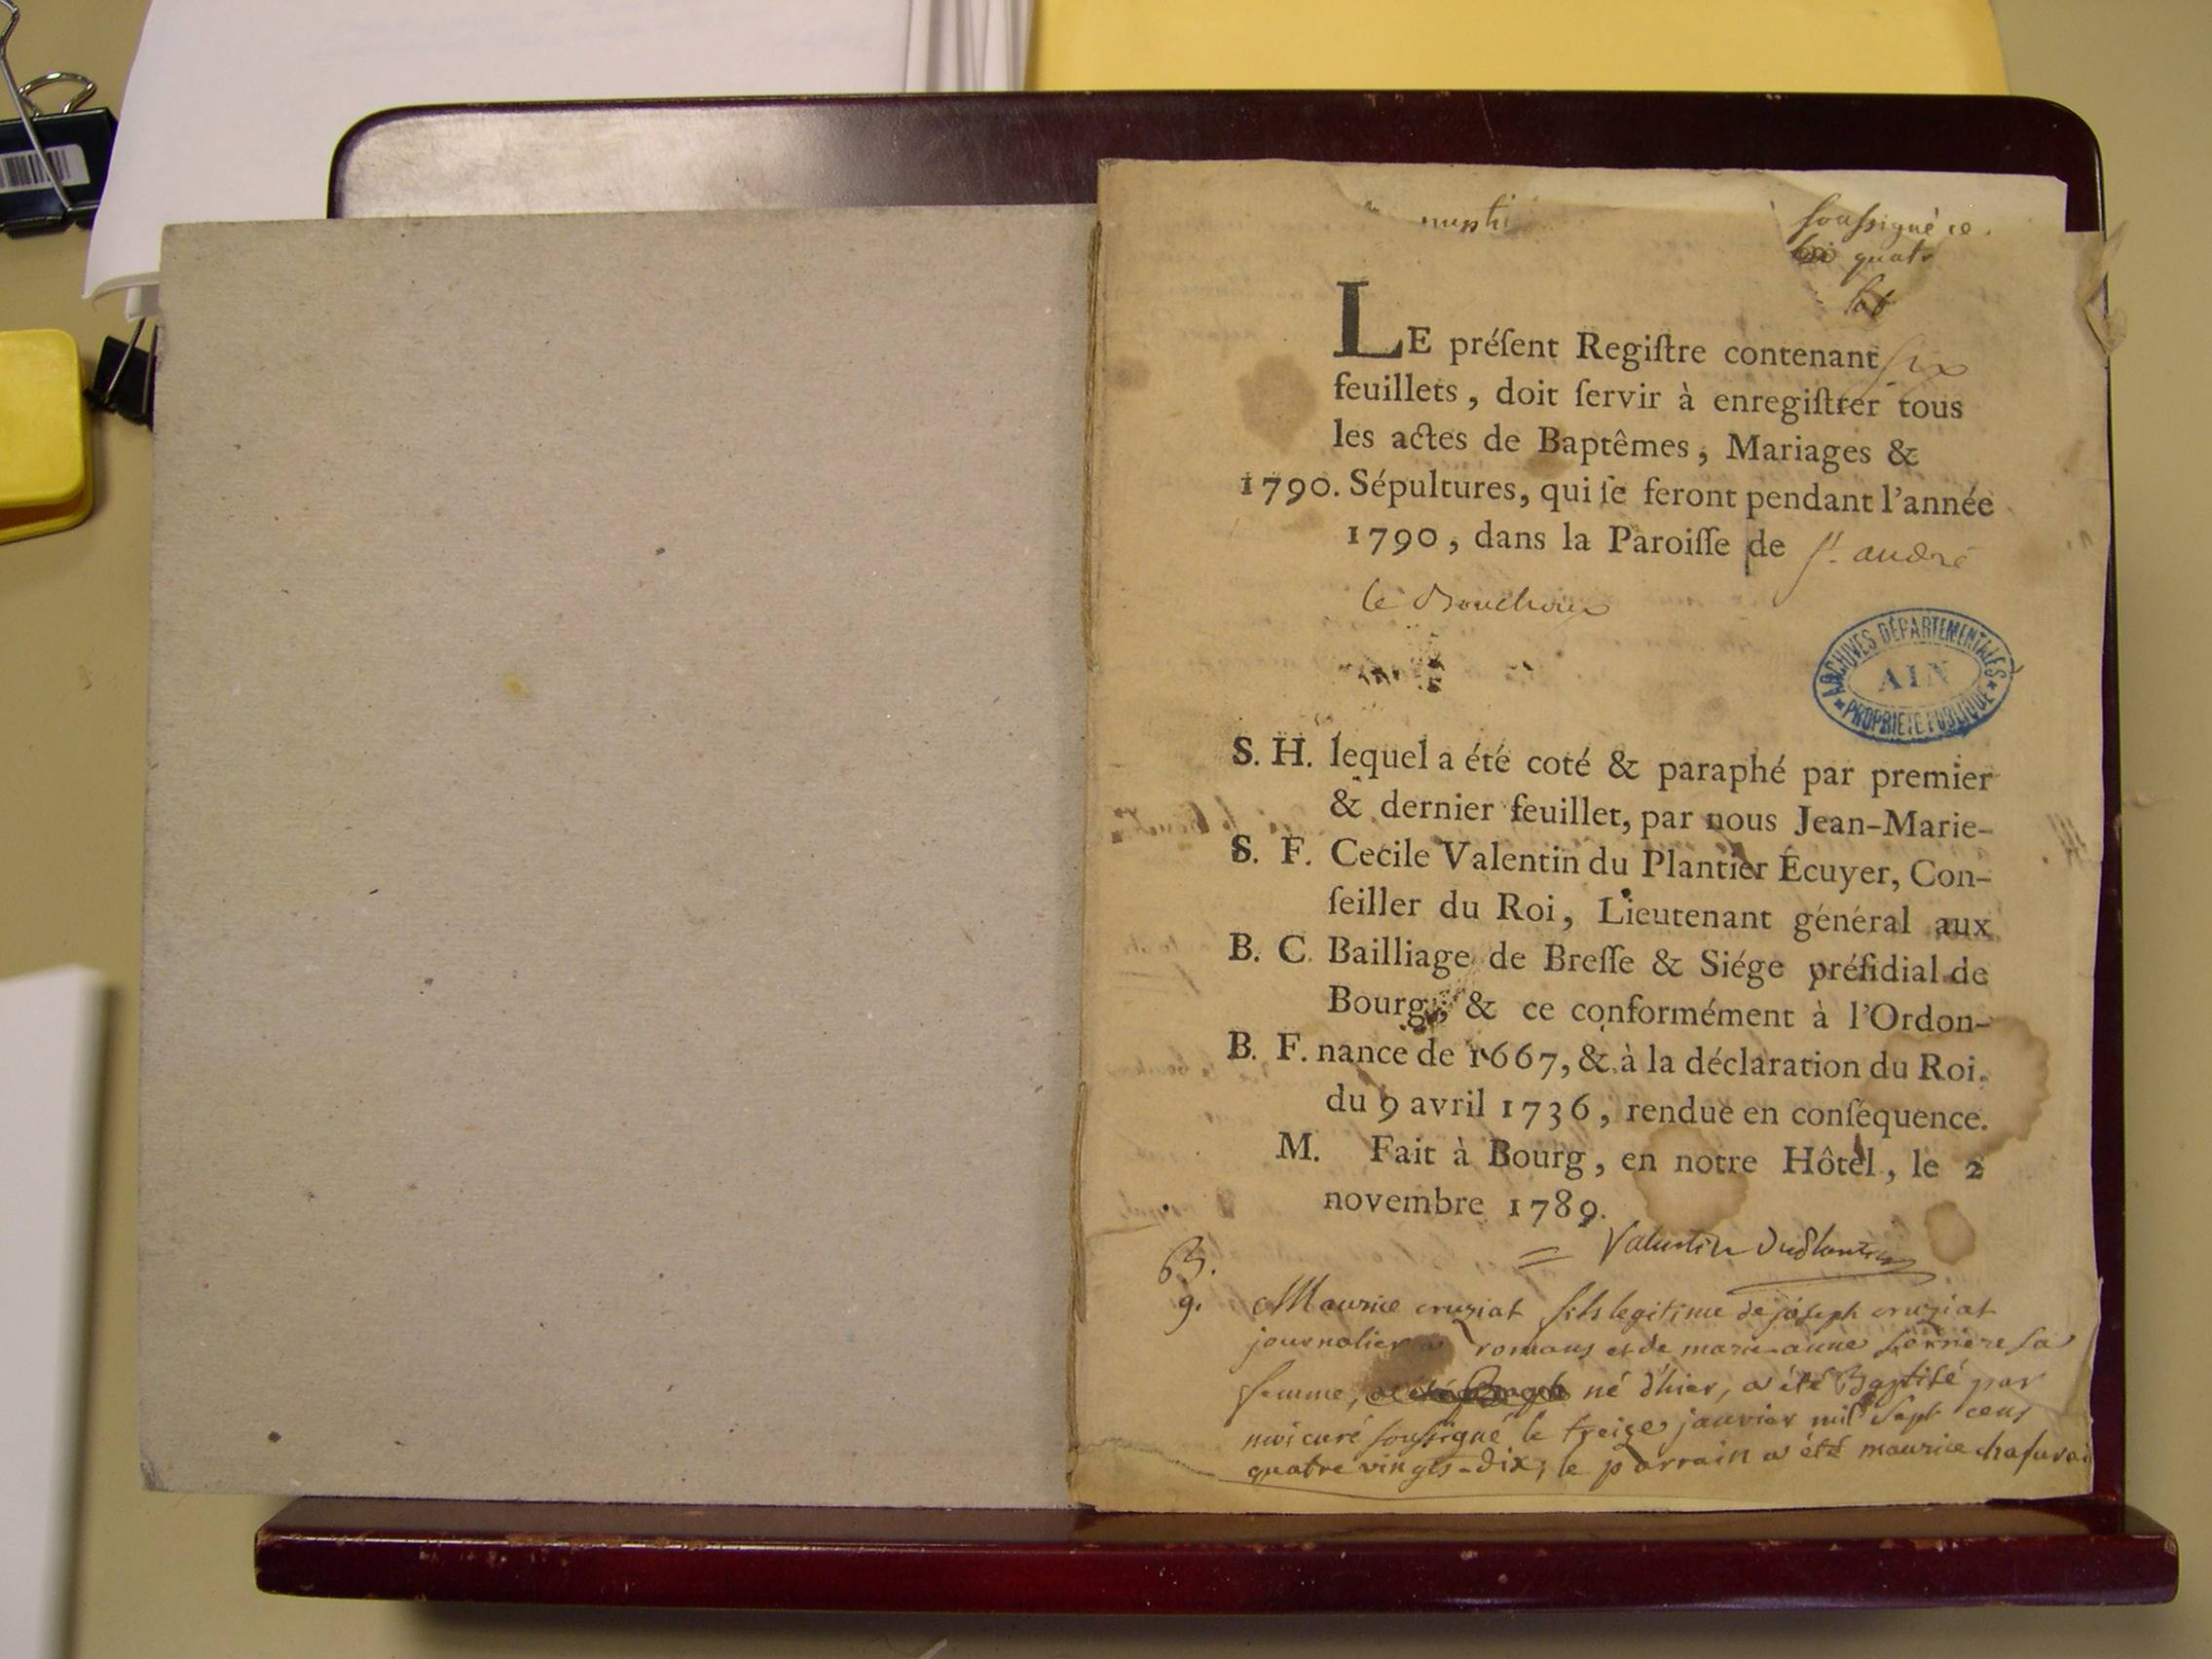 soussigné ce
quatr
LE préſent Regiſtre contenant six
feuillets, doit ſervir à enregiſtrer tous
les actes de Baptêmes, Mariages &
1790. Sépultures, qui ſe feront pendant l'année
1790, dans la Paroiſſe de st. andré
le Bouchoux
ARCHIVES DÉPARTEMENTALES
AIN
* PROPRIETE PUBLIQUE *
S. H. lequel a été coté & paraphé par premier
& dernier feuillet, par nous Jean-Marie-
S. F. Cecile Valentin du Plantier Écuyer, Con-
ſeiller du Roi, Lieutenant général aux
B. C. Bailliage de Breſſe & Siége préſidial de
Bourg, & ce conformément à l'Ordon-
B. F. nance de 1667, & à la déclaration du Roi.
du 9 avril 1736, rendue en conſéquence.
M. Fait à Bourg, en notre Hôtel, le 2
novembre 1789.
= Valentin Duplantier
B.
9. Maurice cruziat fils legitime de joseph cruziat
journalier a romans et de marie-anne ferriere sa
femme, né d'hier, a été Baptisé par
moi curé soussigné le treize janvier mil sept cens
quatre vingts-dix; le parrain a été maurice